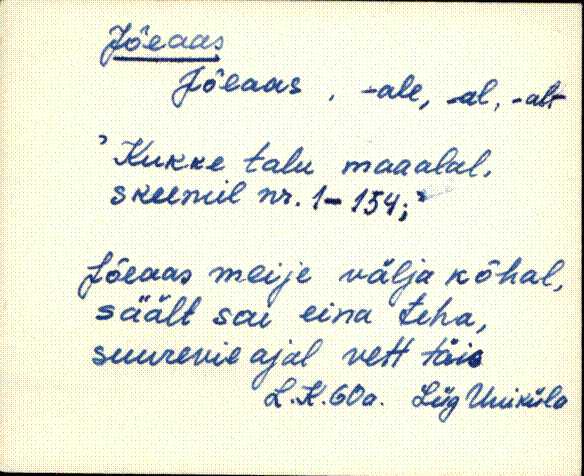 Jõeaas
Jõeaas, -ale, -al, -alt
'Kukke talu maaalal,
skeemil nr. 1-154;'
Jõeaas meije välja kõhal,
säält sai eina teha,
suurevie ajal vett täis
L.K. 60a. Lüg Uniküla